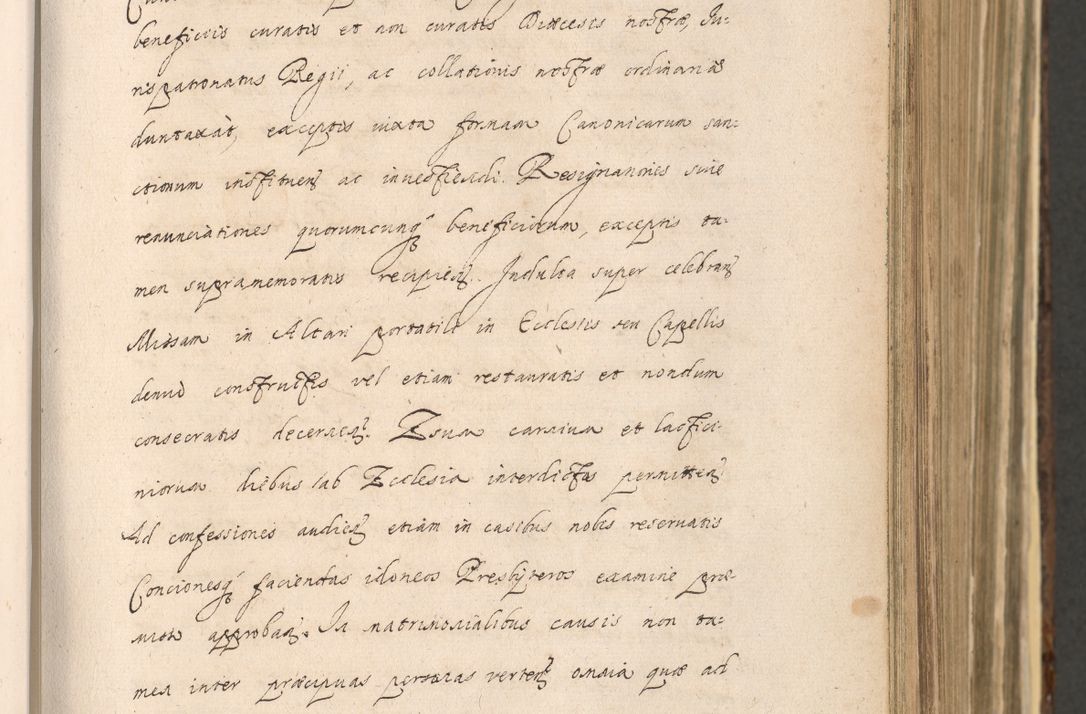 beneficiis curatis et non curatis Diæcesis nostræ, Ju-
rispatronatus Regii, ac collationis nostræ ordinariæ
duntaxat, exceptis iuxta formam Canonicarum san-
ctionum instituen̄ ac inuestiendi. Resignationes siue
renunciationes quorumcunq́ beneficiorum, exceptis ta-
men supramemoratis recipien̄. Indulta super celebran̄
Missam in Altari portatili in Ecclesiis seu Capellis
denuo constructis vel etiam restauratis et nondum
consecratis decernen̄. Esum carnium et lactici-
niorum diebus ab Ecclesia interdictis permitten̄
Ad confessiones audien̄ etiam in casibus nobis reseruatis
Concionesq́ faciendas idoneos Presbyteros examine præ-
uio approban̄. In matrimonialibus causis non ta-
men inter præcipuas personas verten̄ omnia quæ ad